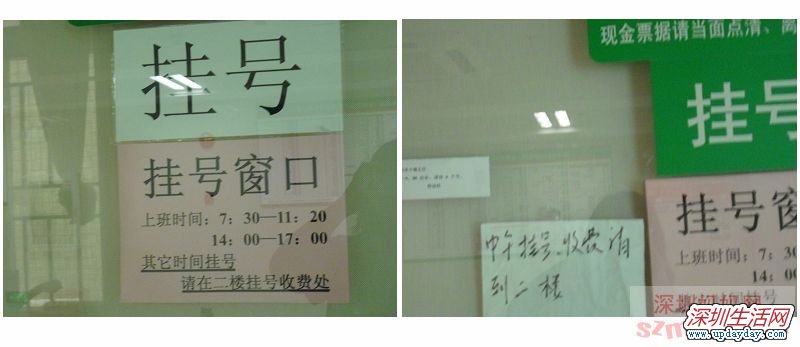 挂号
挂号窗口
上班时间：7：30—11：20
14：00—17：00
其它时间挂号
请在二楼挂号收费处
现金票据请当面点清、离
挂号
中午挂号、收费请
到二楼
挂号窗
上班时间：7：30
14：00
其它时间挂号
深圳生活网
www.updayday.com